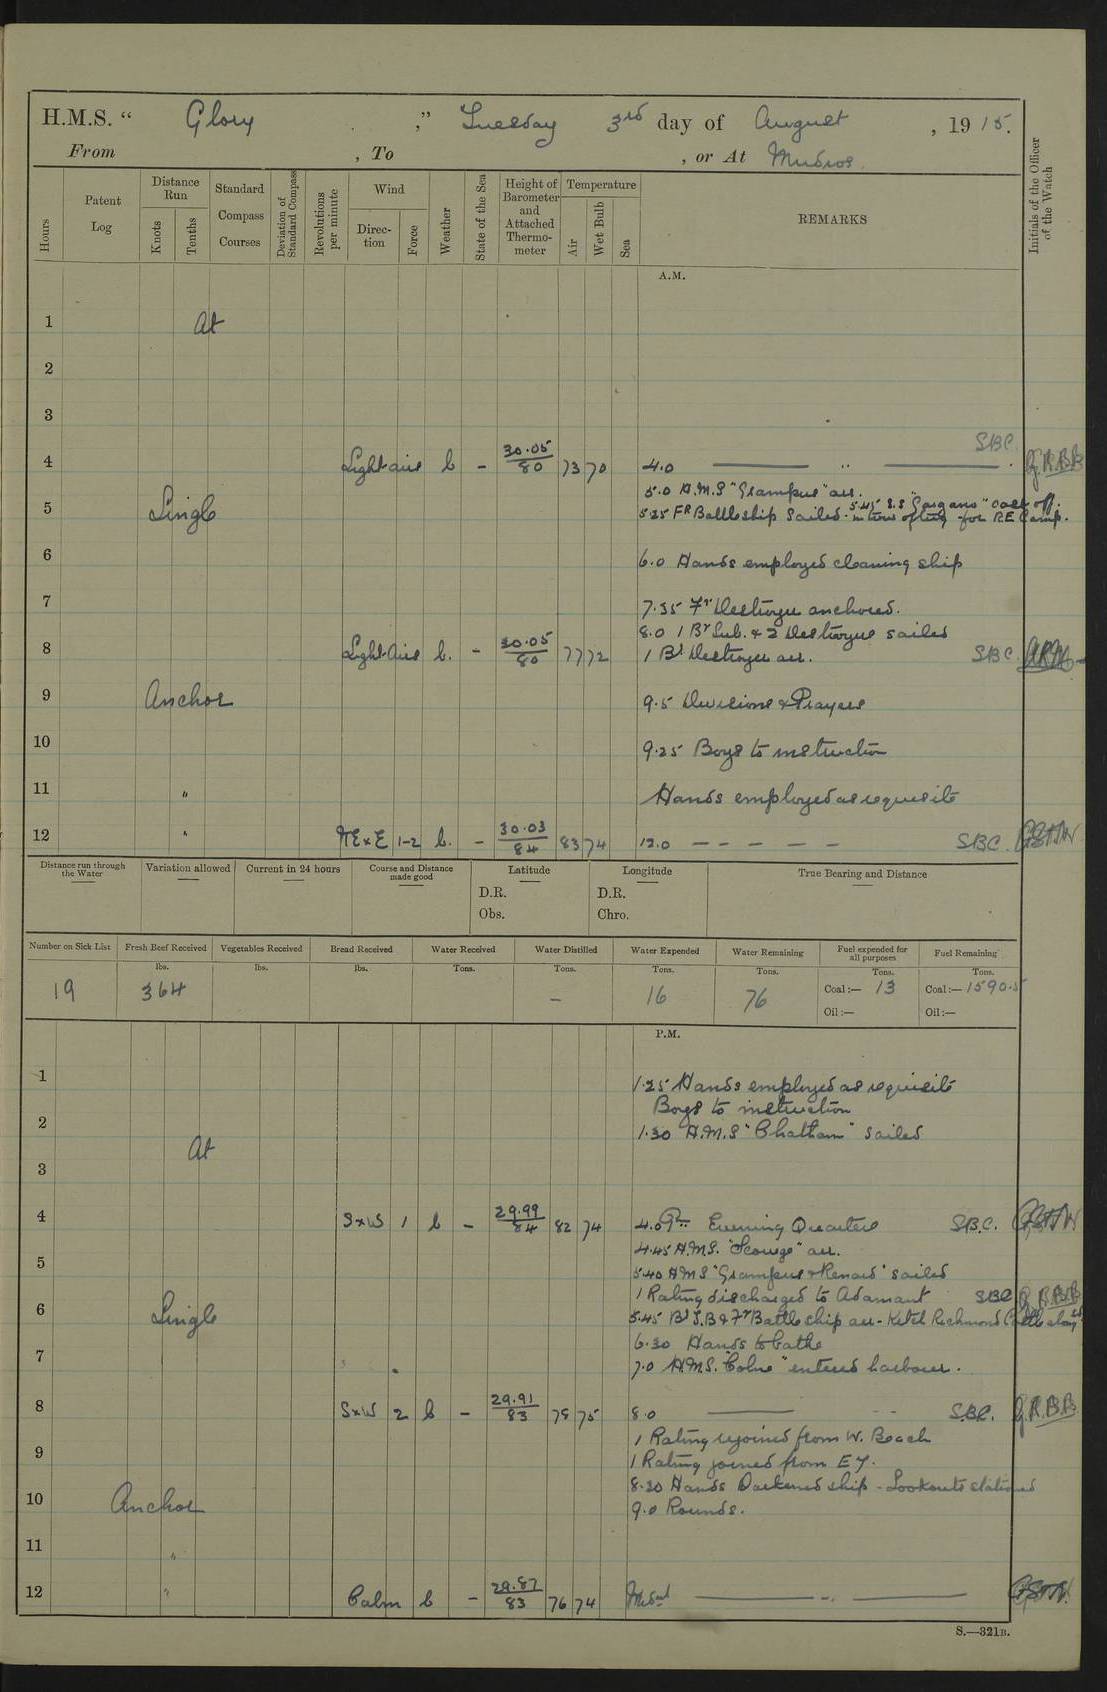 H.M.S. “ Glory ,” Tuesday 3rd day of August , 19 15.
From , To , or At Mudros
Hours
Patent Log
Distance Run
Knots
Tenths
Standard Compass Courses
Deviation of Standard Compass
Revolutions per minute
Wind
Direc-tion
Force
Weather
State of the Sea
Height of Barometer and Attached Thermo-meter
Temperature
Air
Wet Bulb
Sea
REMARKS
Initials of the Officer of the Watch
A.M.
1 At
2
3
SBC
4 Light airs b - 30.05/80 73 70 4.0 G.R.B.B
5.0 H.M.S "Grampus" arr.
5 Single 5.25 Fr Battleship sailed. 5.45 S.S "Gorgans" cast off.
for R.E Camp.
6 6.0 Hands employed cleaning ship
7 7.35 Fr Destroyer anchored.
8.0 1 Br Sub. & 2 Destroyers sailed
8 Light Airs b. - 30.05/80 77 72 1 Br Destroyer arr. SBC.
9 Anchor 9.5 Divisions & Prayers
10 9.25 Boys to instruction
11 " Hands employed as requisite
12 " NExE 1-2 b. - 30.03/84 83 74 12.0 - - - - - SBC.
Distance run through the Water
Variation allowed
Current in 24 hours
Course and Distance made good
Latitude
D.R.
Obs.
Longitude
D.R.
Chro.
True Bearing and Distance
Number on Sick List
Fresh Beef Received
Vegetables Received
Bread Received
Water Received
Water Distilled
Water Expended
Water Remaining
Fuel expended for all purposes
Fuel Remaining
lbs. lbs. lbs. Tons. Tons. Tons. Tons. Tons. Tons.
19 364 - 16 76 Coal:— 13 Coal:— 1590.5
Oil:— Oil:—
P.M.
1 1.25 Hands employed as requisite
Boys to instruction
2 1.30 H.M.S "Chatham" sailed
At
3
4 SxW 1 b - 29.99/84 82 74 4.0 Pm Evening Quarters SBC.
4.45 H.M.S. "Scourge" arr.
5 5.40 H.M.S "Grampus & Renard" sailed
1 Rating discharged to Adamant SBC G.R.B.B
6 Single 5.45 Br T.B & Fr Battleship arr - Ketch Richmond Castle along
6.30 Hands to bathe
7 " 7.0 H.M.S. "Colne" entered harbour.
8 SxW 2 b - 29.91/83 78 75 8.0 S.B.C. G.R.B.B.
1 Rating rejoined from W. Beach
9 1 Rating joined from E7.
8.20 Hands Darkened ship - Lookouts stationed
10 Anchor 9.0 Rounds.
11 "
12 " Calm b - 29.87/83 76 74 Midnt
S.—321B.